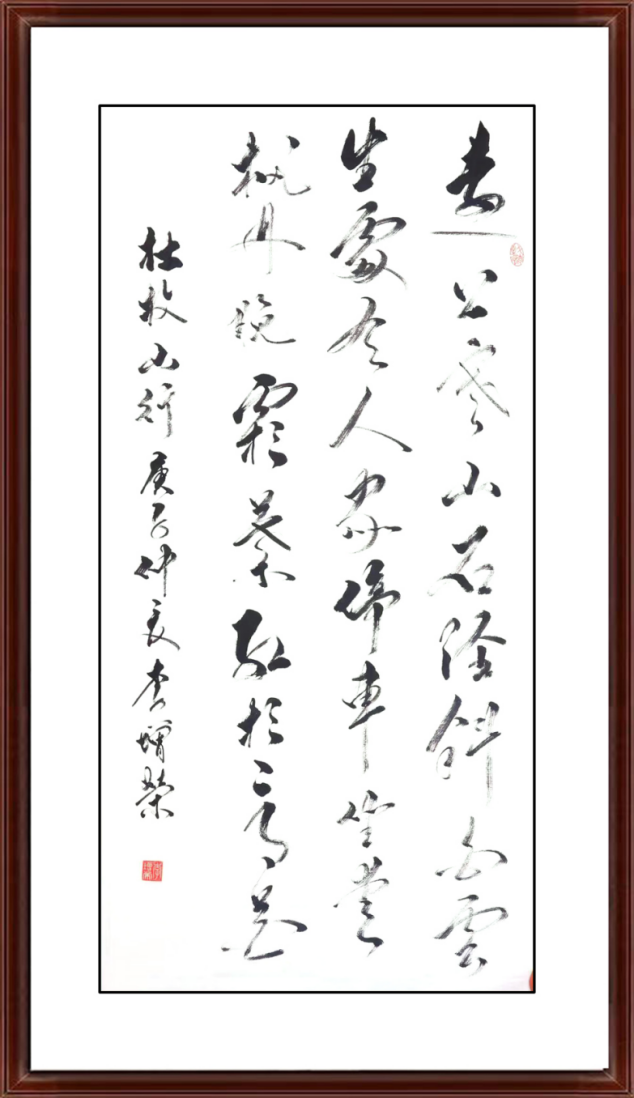 遠上寒山石徑斜白雲
生處有人家停車坐愛
楓林晚霜葉紅於二月花
杜牧山行庚子仲夏李增榮